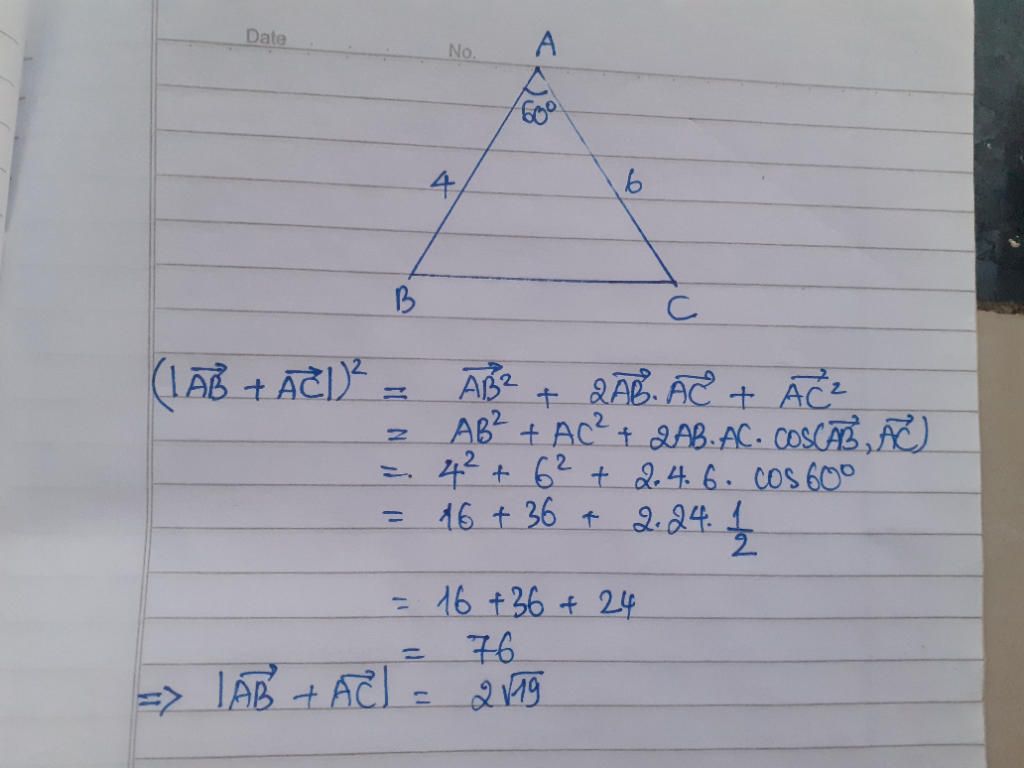 Date
No.
A
60°
4
6
B
C
(|AB⃗ + AC⃗|)² = AB⃗² + 2AB⃗.AC⃗ + AC⃗²
= AB² + AC² + 2AB.AC. cos(AB⃗, AC⃗)
=. 4² + 6² + 2.4.6. cos60°
= 16 + 36 + 2.24. 1/2
= 16 + 36 + 24
= 76
=> |AB⃗ + AC⃗| = 2√19